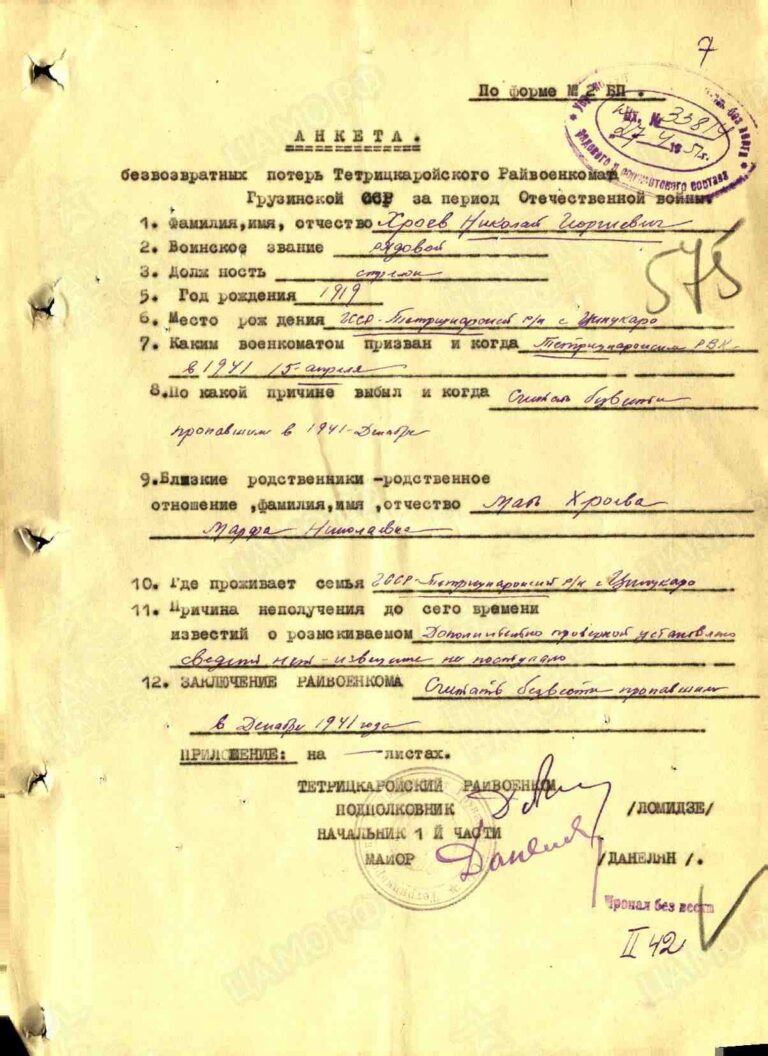 7
По форме № 2 БП.
Вх. № 33814
27 V 1951г.
рядового и сержантского состава
АНКЕТА.
безвозвратных потерь Тетрицкаройского Райвоенкомата
Грузинской ССР за период Отечественной войны
575
1. Фамилия,имя, отчество Хроев Николай Георгиевич
2. Воинское звание рядовой
3. Долж ность стрелок
5. Год рождения 1919
6. Место рож дения ГССР-Тетрицкаройский р/н с
7. Каким военкоматом призван и когда Тетрицкаройским РВК-
в 1941 15-апреля
8.По какой причине выбыл и когда Считать безвести
пропавшим в 1941-Декабре
9.Близкие родственники -родственное
отношение ,фамилия,имя ,отчество мать Хроева
Марфа Николаевна
10. Где проживает семья ГССР-Тетрицкаройский р/н с
11. Причина неполучения до сего времени
известий о розыскиваемом Дополнительно проверкой установлено
сведений нет-извещение не поступало
12. ЗАКЛЮЧЕНИЕ РАИВОЕНКОМА Считать безвести пропавшим
в Декабре 1941 года
ПРИЛОЖЕНИЕ: на — листах.
ТЕТРИЦКАРОЙСКИЙ РАИВОЕНКОМ
ПОДПОЛКОВНИК /ЛОМИДЗЕ/
НАЧАЛЬНИК 1 Й ЧАСТИ
МАИОР Данелян /ДАНЕЛЯН /.
Пропал без вести
II 42
ЦАМО РФ